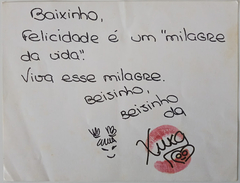 Baixinho,
Felicidade é um "milagre
da vida".
Viva esse milagre.
Beisinho,
Beisinho
da
Xuxa